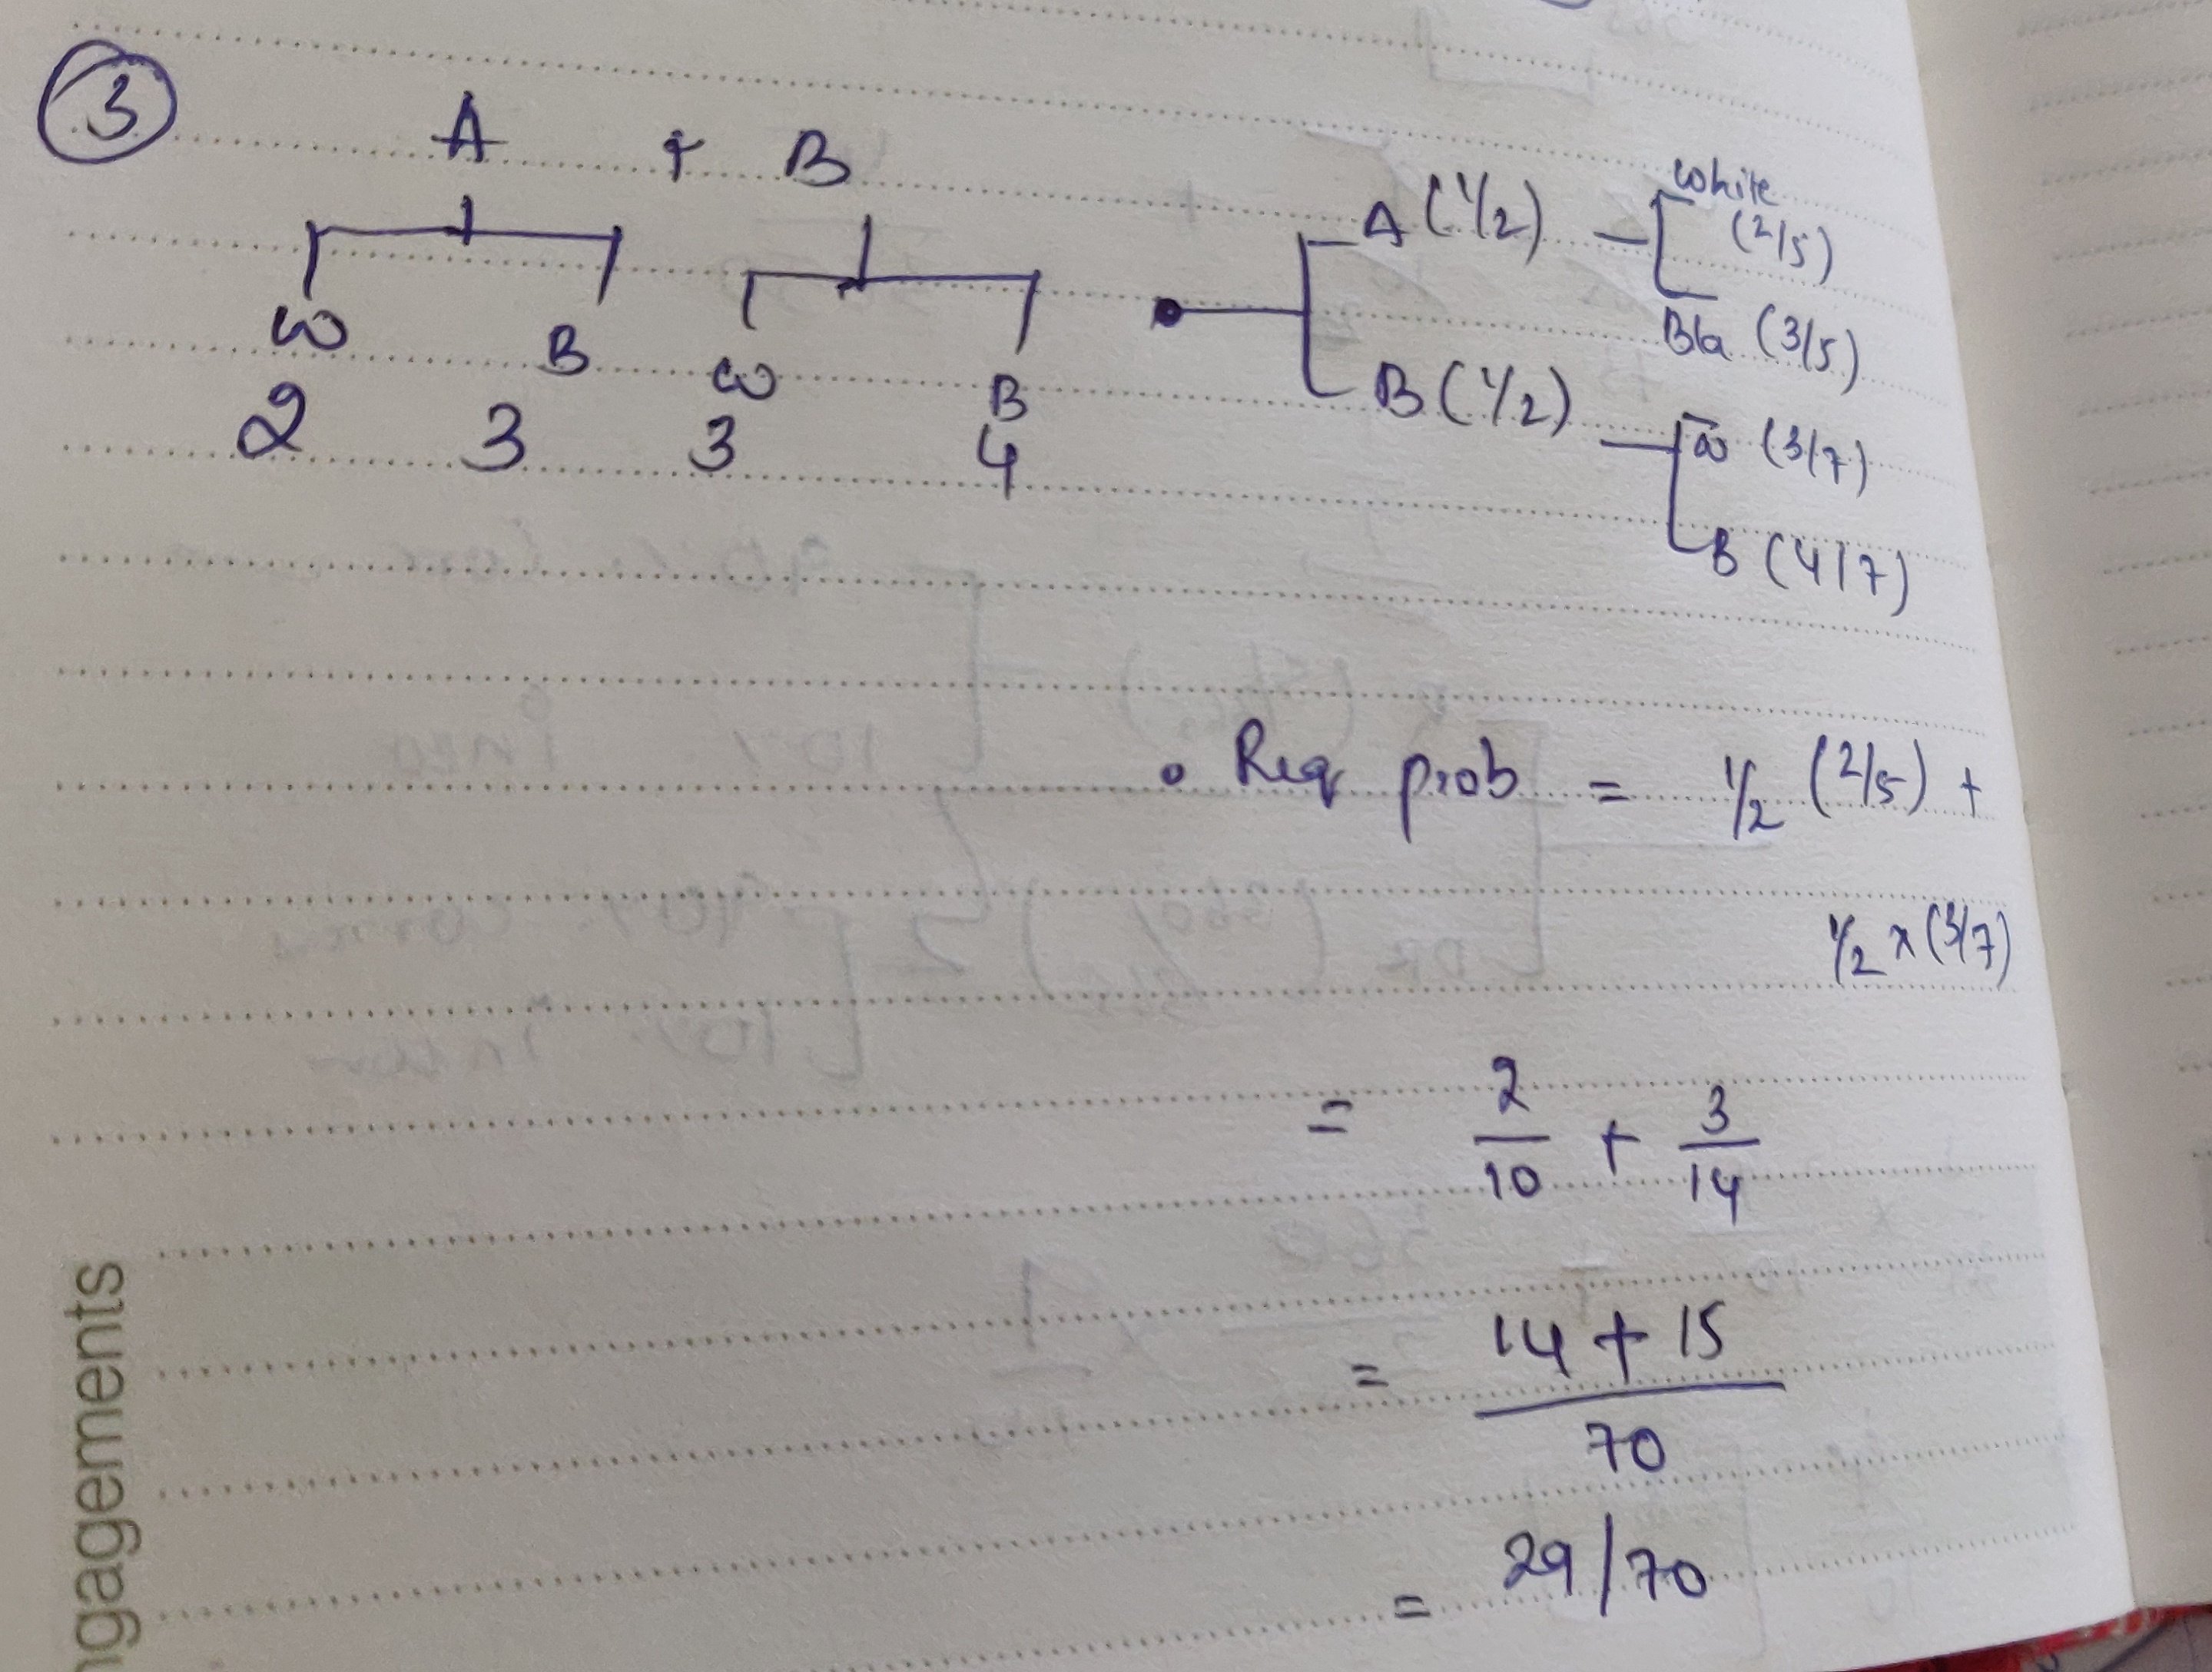 3
A + B
W B W B
2 3 3 4
A (1/2) White (2/5)
Bla (3/5)
B (1/2) W (3/7)
B (4/7)
Req prob = 1/2 (2/5) +
1/2 x (3/7)
= 2/10 + 3/14
= 14 + 15 / 70
= 29/70
ngagements